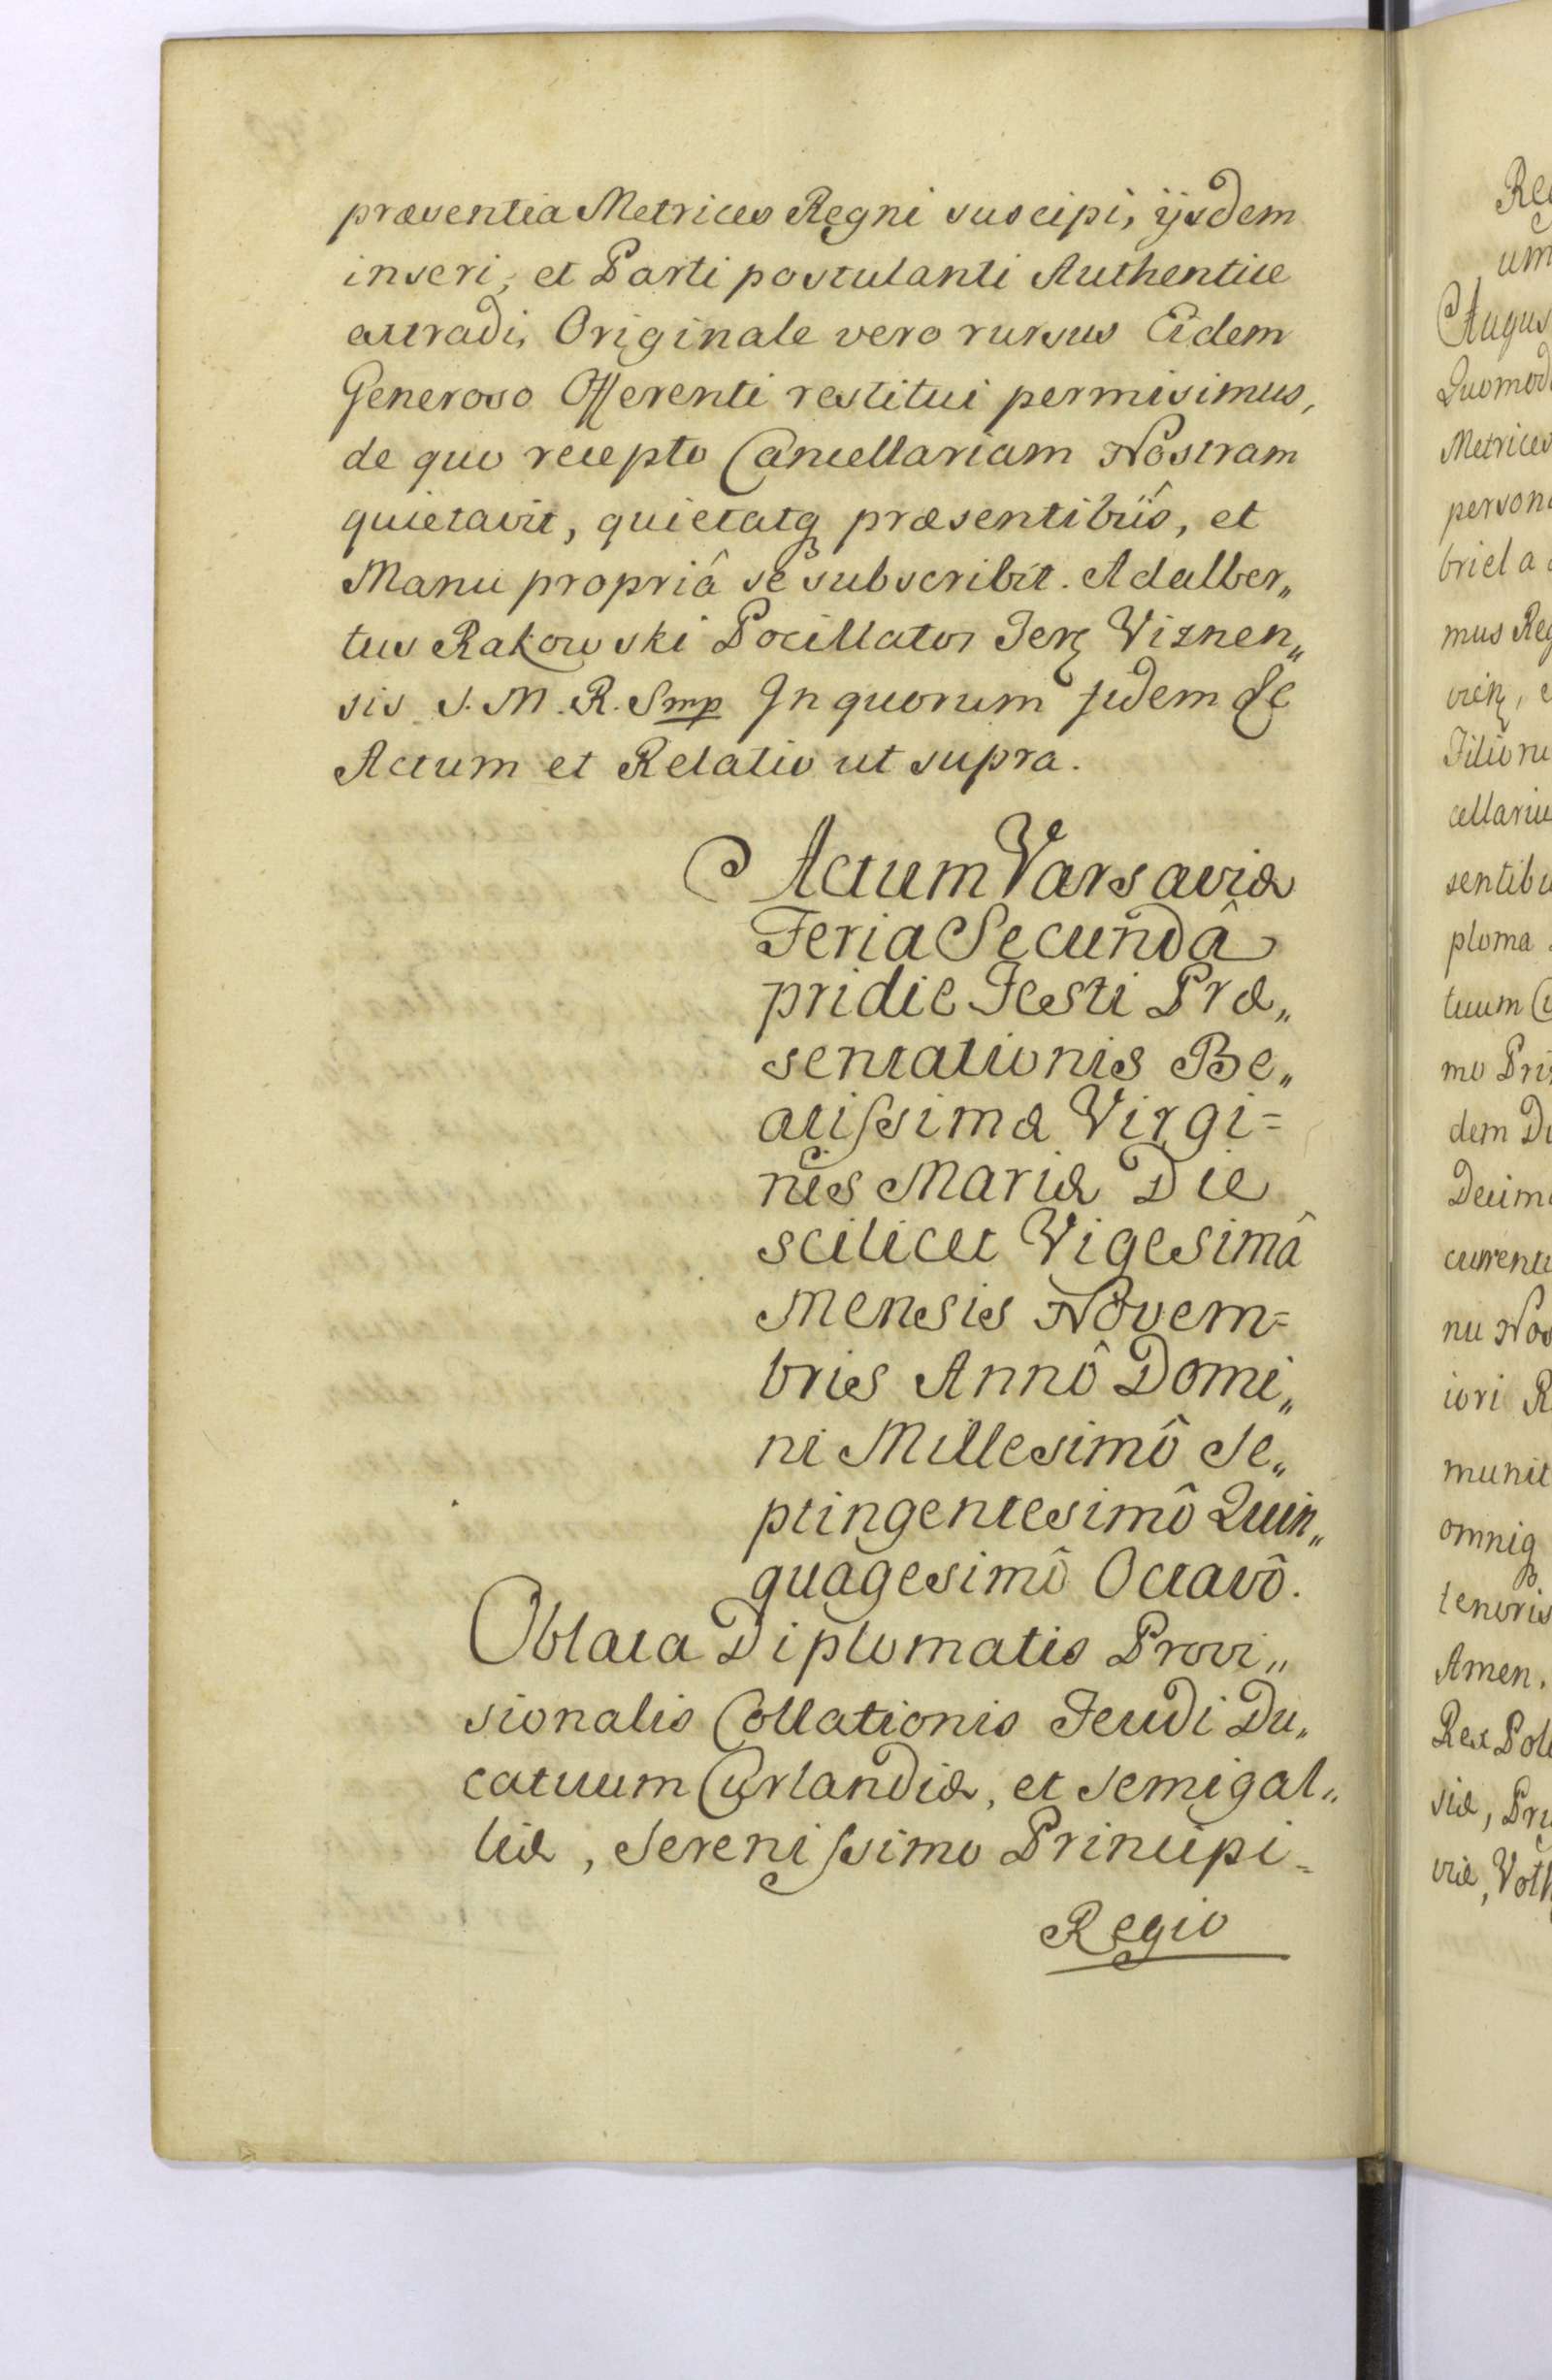 præsentia Metrices Regni suscipi, ijsdem
inseri, et Parti postulanti Authentice
extradi, Originale vero rursus Eidem
Generoso Offerenti restitui permisimus,
de quo recepto Cancellariam Nostram
quietavit, quietatq præsentibûs, et
Manu propriâ se subscribit. Adalber„
tus Rakowski Pocillator Terꝝ Viznen„
sis S. M. R. Smp In quorum fidem &c
Actum et Relatio ut supra.
Actum Varsaviæ
Feria Secundâ
pridie Festi Præ„
sentationis Be„
atissimæ Virgi=
nis Mariæ Die
scilicet Vigesimâ
Mensis Novem=
bris Annô Domi„
ni Millesimô Se„
ptingentesimô Quin„
quagesimô Octavô.
Oblata Diplomatis Provi„
sionalis Collationis Feudi Du„
catuum Curlandiæ, et Semigal„
liæ, Serenissimo Principi=
Regio
um
Augus
Quomod
Metrices
person
briel a
mus Reg
Filioru
cellariu
sentibu
ploma
tuum
mo Pri
dem Du
Decim
current
nu Nos
iori R
munit
omniq
tenoris
Amen.
Rex Pol
siæ, Pru
viæ, Volh